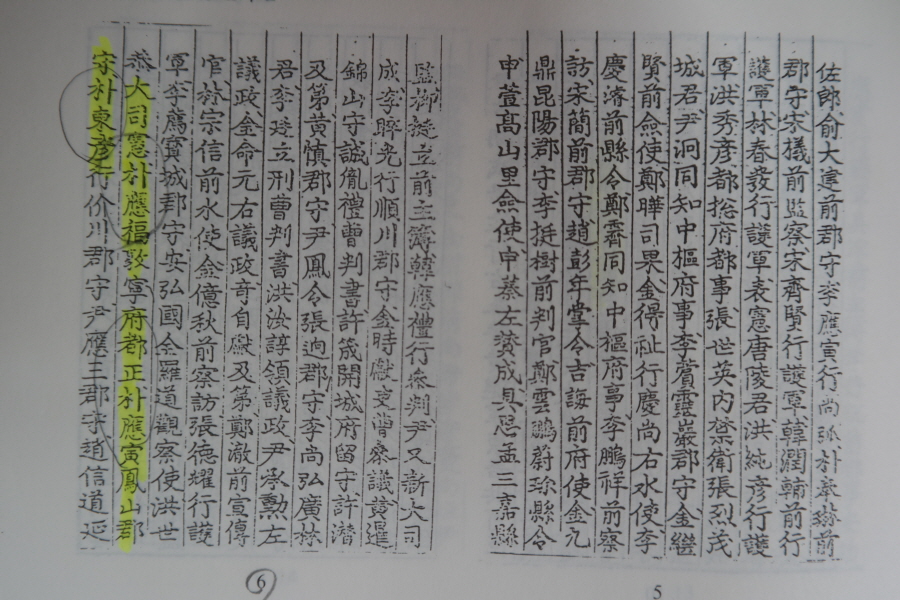 佐郎俞大建前郡守李應寅行尚朴奉前
郡守宋檥前監察宋齊賢行護軍韓潤輔前行
護軍林春發行護軍表憲唐陵君洪純彦行護
軍洪秀彦都摠府都事張世英內禁衛張烈茂
城君尹泂同知中樞府事李蓂靈巖郡守金繼
賢前僉使鄭曄司果金得祉行慶尚右水使李
慶濬前縣令鄭霽同知中樞府事李鵬祥前察
訪宋簡前郡守趙彭年掌令吉誨前府使金九
鼎昆陽郡守李挺樹前判官鄭雲鵬蔚珍縣令
申萱高山里僉使申綦左贊成具思孟三嘉縣
5
監柳挺立前主簿韓應禮行參判尹又新大司
成李睟光行順川郡守金時獻吏曹參議黃暹
錦山守誠胤禮曹判書許箴開城府留守許潛
及第黃慎郡守尹鳳令張逈郡守李尚弘廣林
君李廷立刑曹判書洪汝諄領議政尹承勳左
議政金命元右議政奇自獻及第鄭澈前宣傳
官林宗信前水使金億秋前察訪張德耀行護
軍李薦寶城郡守安弘國全羅道觀察使洪世
恭大司憲朴應福敦寧府都正朴應寅鳳山郡
守朴東彦行价川郡守尹應三郡守趙信道延
6